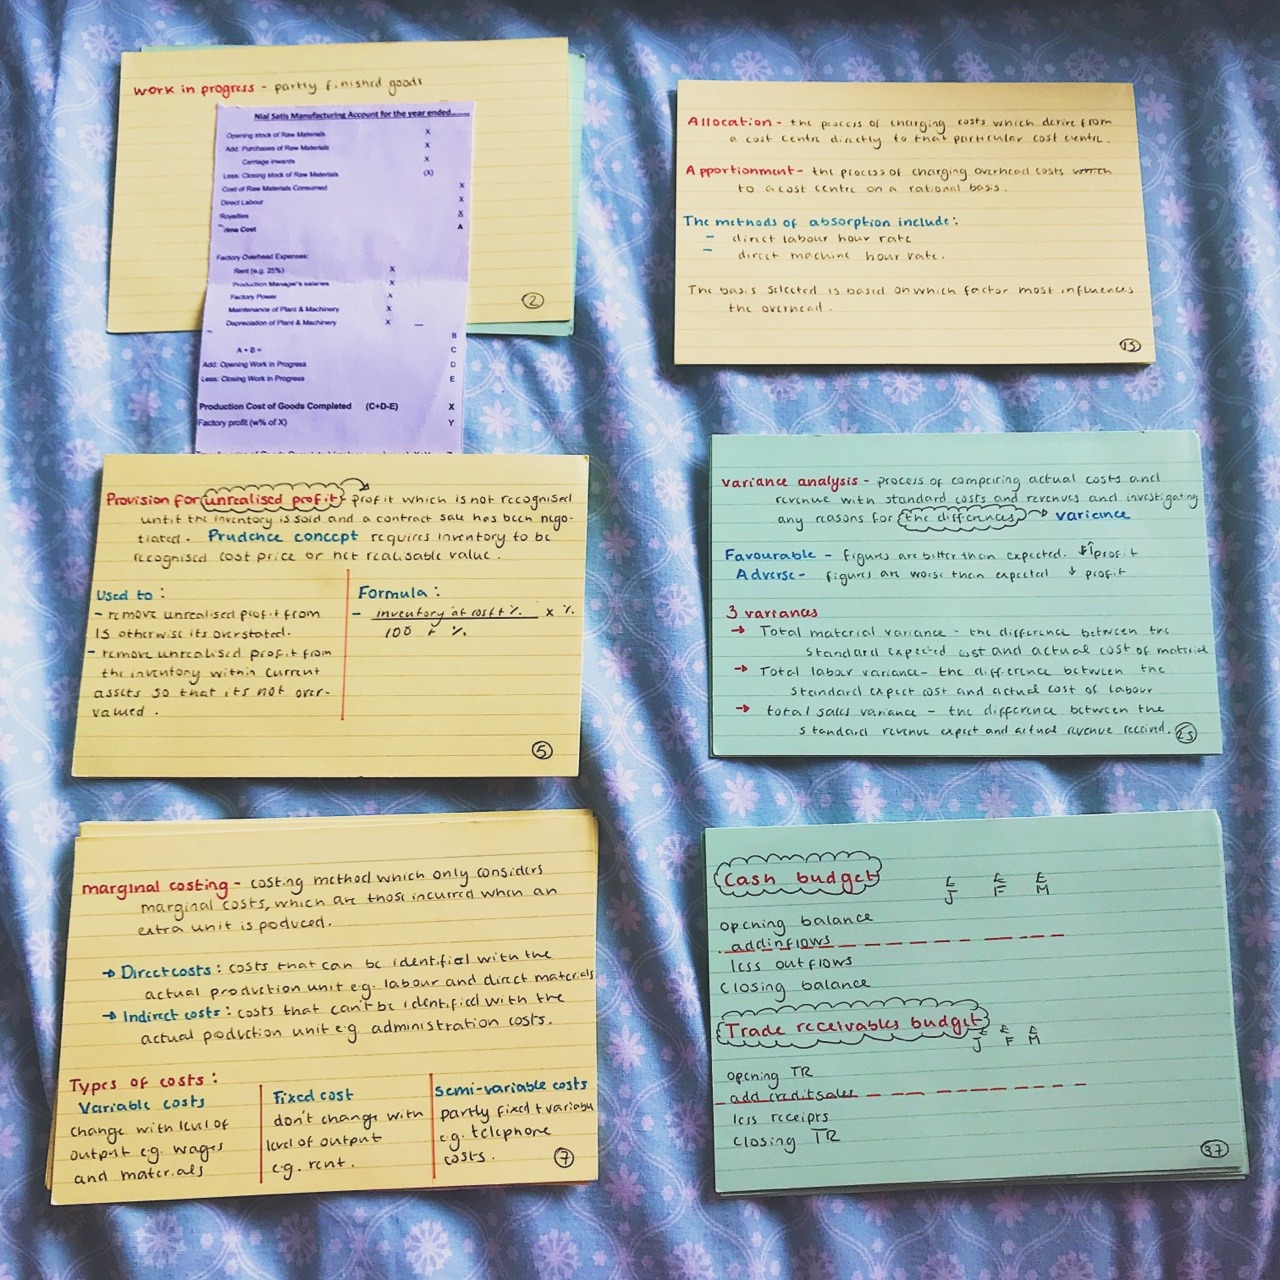 work in progress - partly finished goods
Nial Satis Manufacturing Account for the year ended........
Opening stock of Raw Materials X
Add: Purchases of Raw Materials X
Carriage inwards X
Less: Closing stock of Raw Materials (X)
Cost of Raw Materials Consumed X
Direct Labour X
Royalties X
Prime Cost A
Factory Overhead Expenses:
Rent (e.g. 25%) X
Production Manager's salaries X
Factory Power X
Maintenance of Plant & Machinery X
Depreciation of Plant & Machinery X
B
A + B = C
Add: Opening Work in Progress D
Less: Closing Work in Progress E
Production Cost of Goods Completed (C+D-E) X
Factory profit (w% of X) Y
2
Allocation - the process of charging costs which derive from
a cost centre directly to that particular cost centre.
Apportionment - the process of charging overhead costs
to a cost centre on a rational basis.
The methods of absorption include:
- direct labour hour rate
- direct machine hour rate.
The basis selected is based on which factor most influences
the overhead.
15
Provision for unrealised profit - profit which is not recognised
until the inventory is sold and a contract sale has been nego-
tiated. Prudence concept requires inventory to be
recognised cost price or net realisable value.
Used to:
- remove unrealised profit from
IS otherwise its overstated.
- remove unrealised profit from
the inventory within current
assets so that its not over-
valued.
Formula:
- inventory at cost + % x %
100 + %
5
variance analysis - process of comparing actual costs and
revenue with standard costs and revenues and investigating
any reasons for the differences → variance
Favourable - figures are better than expected. ↑ profit
Adverse - figures are worse than expected ↓ profit
3 variances
→ Total material variance - the difference between the
standard expected cost and actual cost of material
→ Total labour variance - the difference between the
standard expect cost and actual cost of labour
→ total sales variance - the difference between the
standard revenue expect and actual revenue received.
marginal costing - costing method which only considers
marginal costs, which are those incurred when an
extra unit is poduced.
→ Direct costs: costs that can be identified with the
actual production unit e.g. labour and direct materials
→ Indirect costs: costs that can't be identified with the
actual poduction unit e.g. administration costs.
Types of costs:
Variable costs
change with level of
output e.g. wages
and materials
Fixed cost
don't change with
level of output
e.g. rent.
Semi-variable costs
partly fixed + variable
e.g. telephone
costs.
7
Cash budget
£ £ £
J F M
opening balance
add inflows
less outflows
closing balance
Trade receivables budget
£ £ £
J F M
opening TR
add credit sales
less receipts
closing TR
37